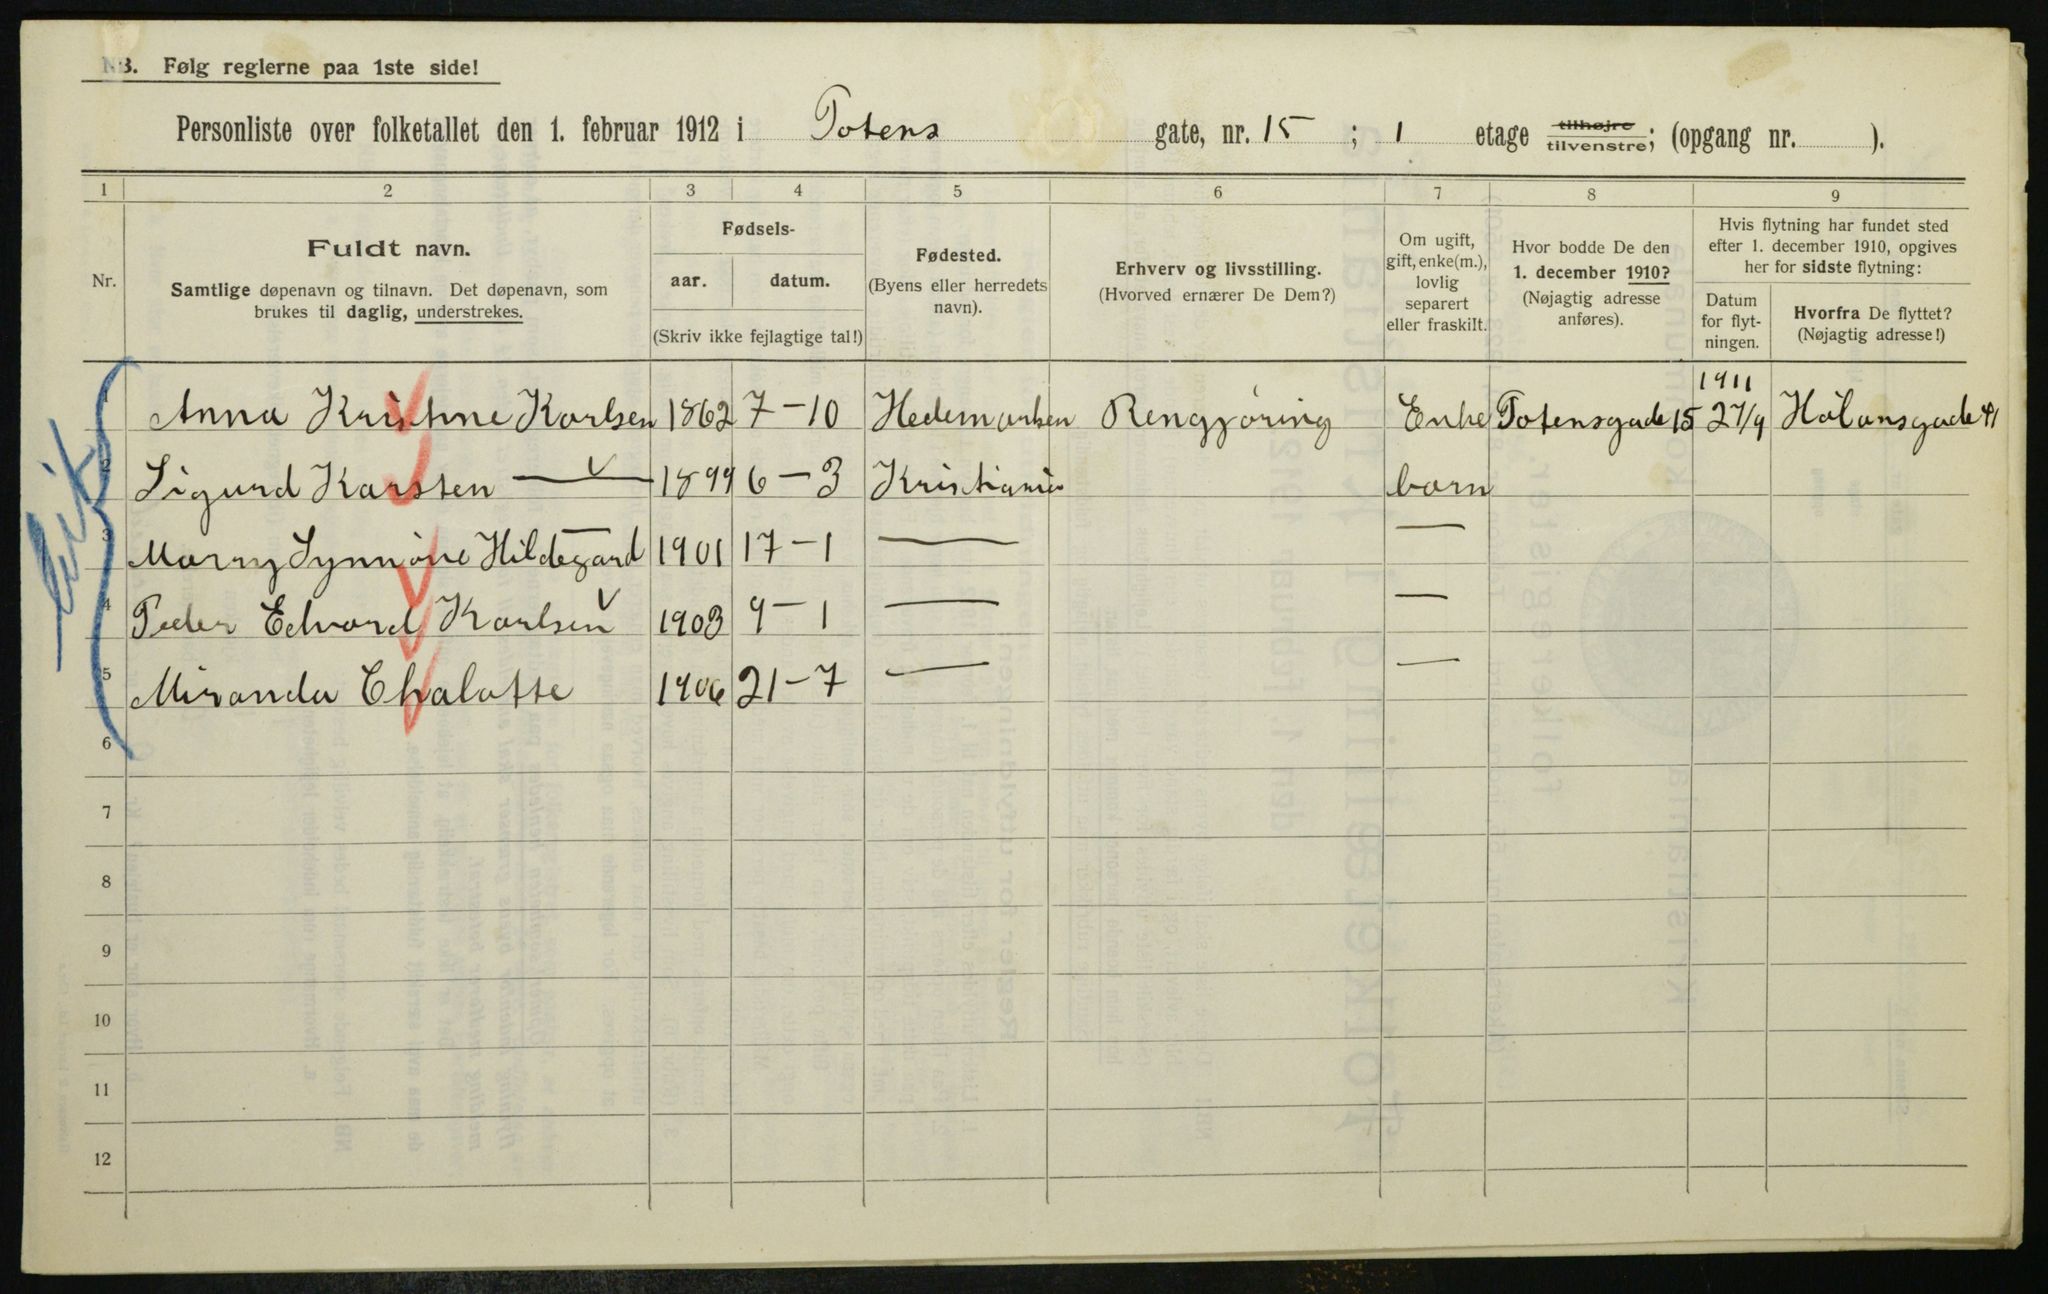 NB. Følg reglerne paa 1ste side!
Personliste over folketallet den 1. februar 1912 i Totens gate, nr. 15 ; 1 etage tilhøjre tilvenstre; (opgang nr. ).
1 2 3 4 5 6 7 8 9
Nr.
Fuldt navn.
Samtlige døpenavn og tilnavn. Det døpenavn, som
brukes til daglig, understrekes.
Fødsels-
aar. datum.
(Skriv ikke fejlagtige tal!)
Fødested.
(Byens eller herredets
navn).
Erhverv og livsstilling.
(Hvorved ernærer De Dem?)
Om ugift,
gift, enke(m.),
lovlig
separert
eller fraskilt.
Hvor bodde De den
1. december 1910?
(Nøjagtig adresse
anføres).
Hvis flytning har fundet sted
efter 1. december 1910, opgives
her for sidste flytning:
Datum
for flyt-
ningen.
Hvorfra De flyttet?
(Nøjagtig adresse!)
1 Anna Kristine Karlsen 1862 7-10 Hedemarken Rengjøring Enke Totensgade 15 1911 27/9 Hølansgade 41
2 Sigurd Karsten — 1899 6-3 Kristiania barn
3 Marny Synnøve Hildegard — 1901 17-1 — —
4 Peder Edvard Karlsen 1903 9-1 — —
5 Miranda Chalotte 1906 21-7 — —
6
7
8
9
10
11
12